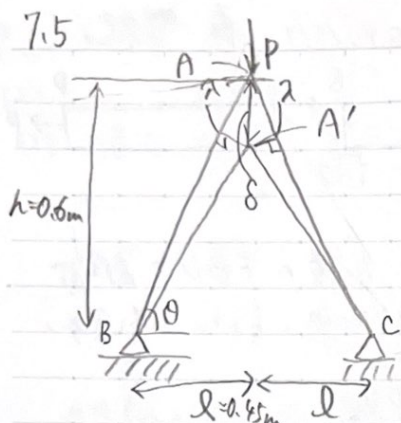 7.5
P
A
λ
λ
A'
δ
h=0.6m
θ
B
C
l=0.45m
l